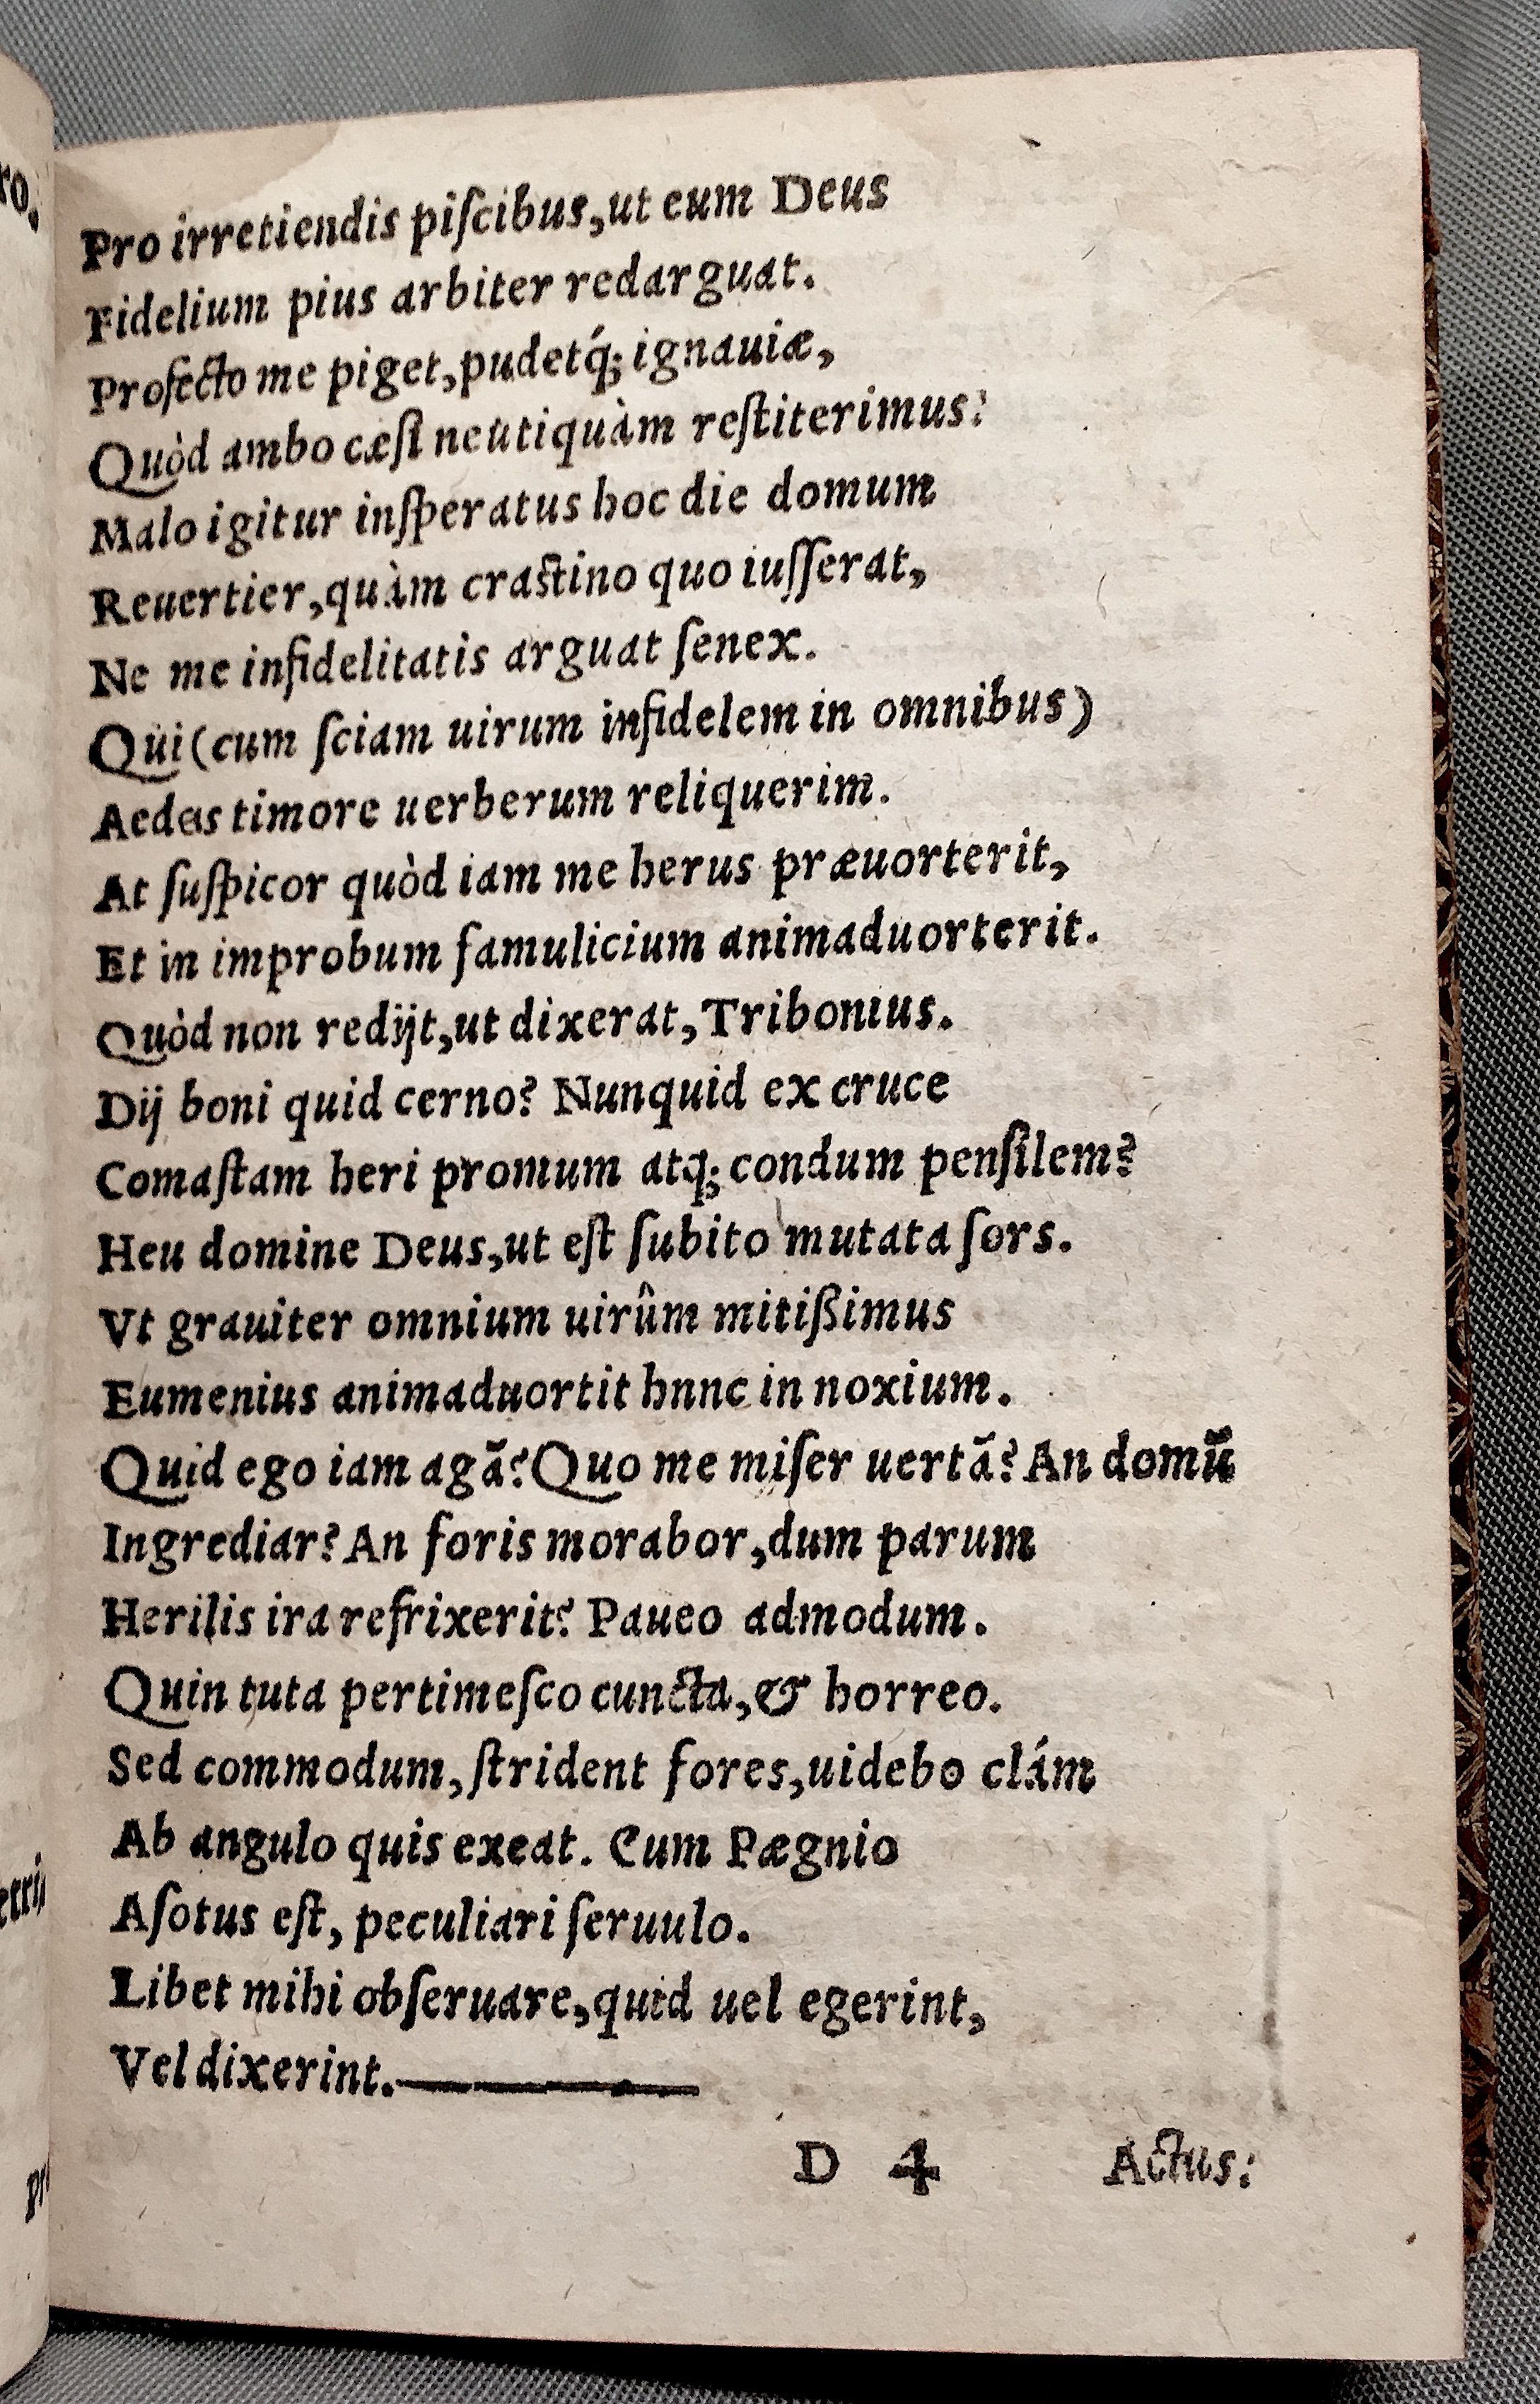 Pro irretiendis piſcibus, ut eum Deus
Fidelium pius arbiter redarguat.
Profecto me piget, pudetq́; ignauiæ,
Quòd ambo cæſi neutiquàm reſtiterimus:
Malo igitur inſperatus hoc die domum
Reuertier, quàm craſtino quo iuſſerat,
Ne me infidelitatis arguat ſenex.
Qui (cum ſciam uirum infidelem in omnibus)
Aedes timore uerberum reliquerim.
At ſuſpicor quòd iam me herus præuorterit,
Et in improbum famulicium animaduorterit.
Quòd non redijt, ut dixerat, Tribonius.
Dij boni quid cerno? Nunquid ex cruce
Comaſtam heri promum atq; condum penſilem?
Heu domine Deus, ut eſt ſubito mutata ſors.
Vt grauiter omnium uirûm mitißimus
Eumenius animaduortit hnnc in noxium.
Quid ego iam agā? Quo me miſer uertā? An domū
Ingrediar? An foris morabor, dum parum
Herilis ira refrixerit? Paueo admodum.
Quin tuta pertimeſco cuncta, & horreo.
Sed commodum, ſtrident fores, uidebo clám
Ab angulo quis exeat. Cum Pægnio
Aſotus eſt, peculiari ſeruulo.
Libet mihi obſeruare, quid uel egerint,
Vel dixerint.
D 4 Actus: